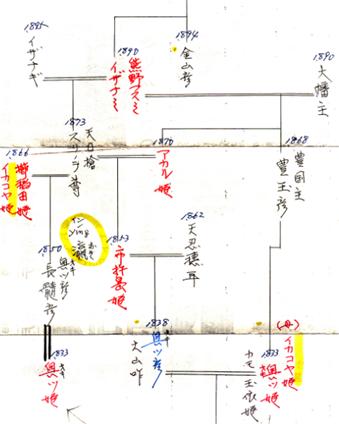 1895
イザナギ
1890
熊野フスミ
イザナミ
1894
金山彦
1890
大幡主
1873
スサノヲ尊
天日槍
1870
アカル姫
1868
豊国主
豊玉彦
1866
櫛稲田姫
イカコヤ姫
1850
長髄彦
1853
市杵島姫
1862
天忍穂耳
1833
奥ツ姫
1838
奥ツ彦
大山咋
カモ玉依姫
1833
奥ツ姫
イカコヤ姫